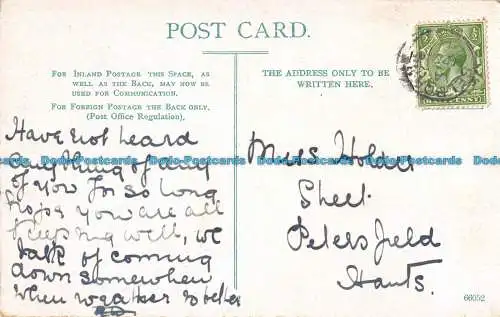 POST CARD.
FOR INLAND POSTAGE THIS SPACE, AS
WELL AS THE BACK, MAY NOW BE
USED FOR COMMUNICATION.
FOR FOREIGN POSTAGE THE BACK ONLY.
(Post Office Regulation).
THE ADDRESS ONLY TO BE
WRITTEN HERE.
Have not heard
anything of
of you for so long
hope you are all
keeping well, we
talk of coming
down somewhen
when weather is better
Miss
Sheet
Petersfield
Hants.
66052
Dodo-Postcards